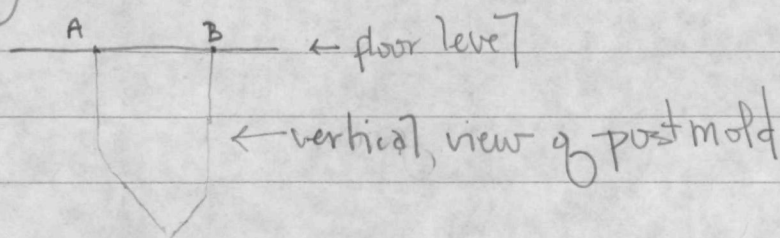 A B ← floor level
← vertical, view of postmold